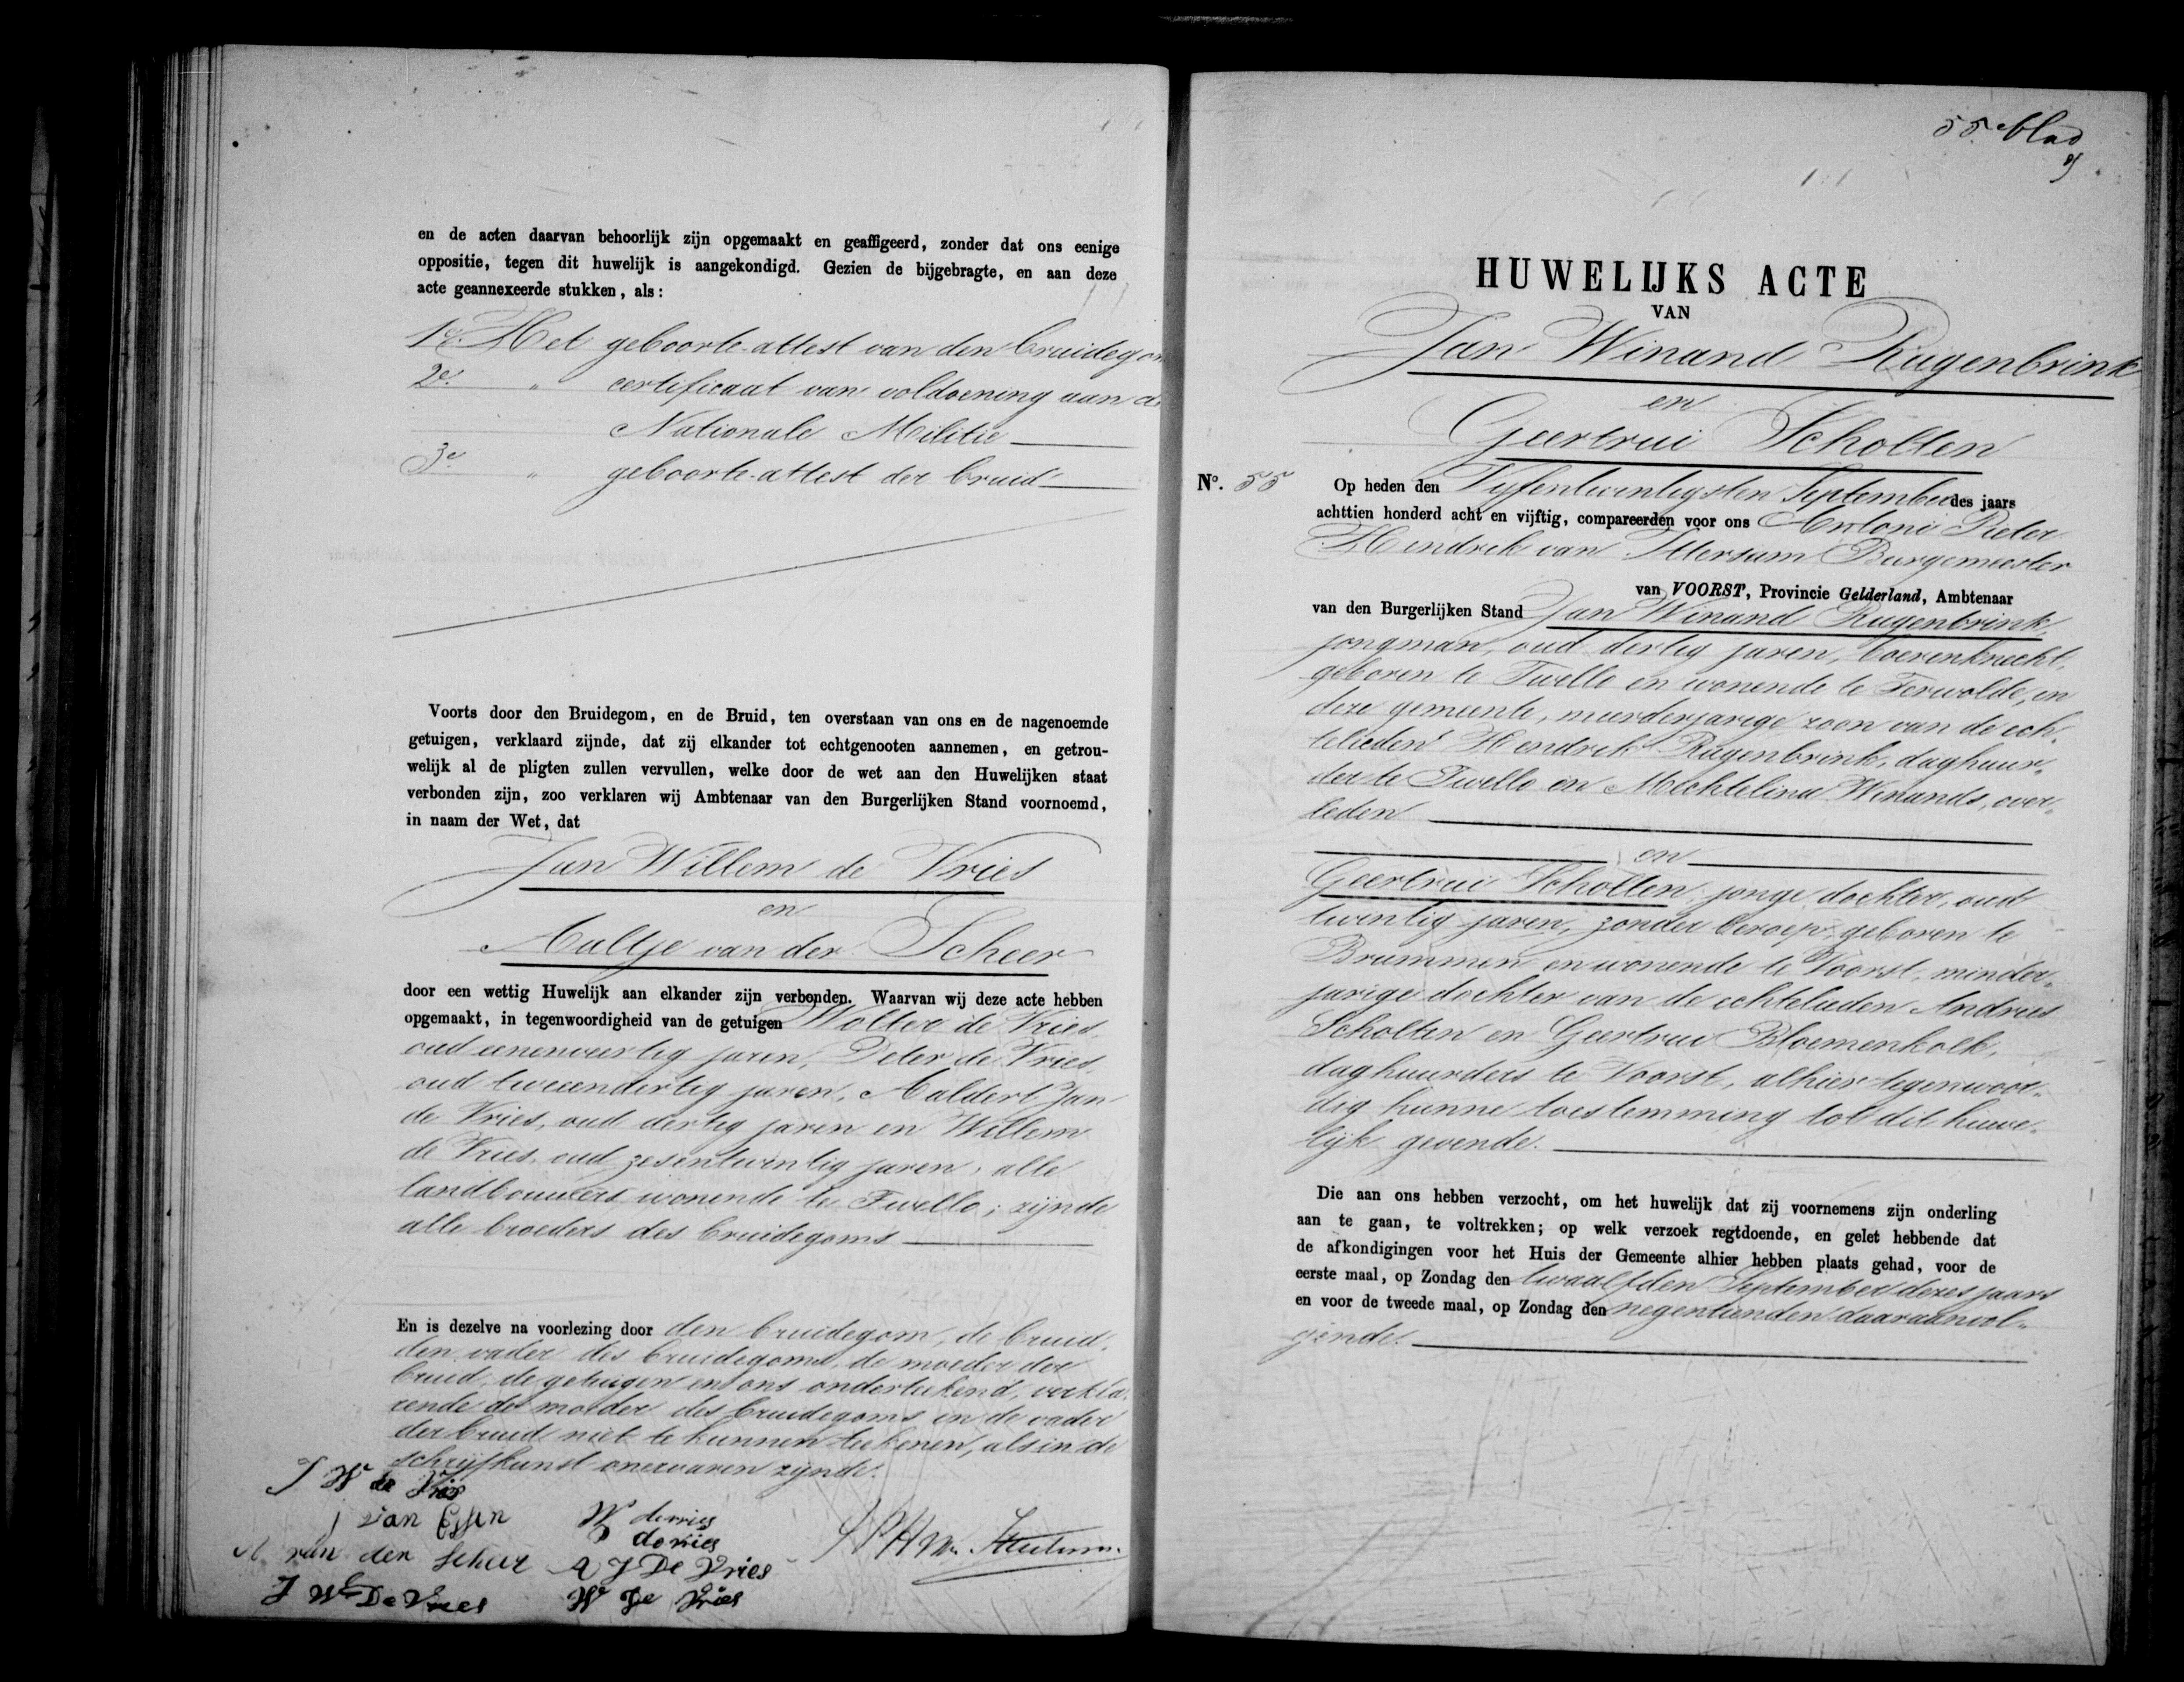 en de acten daarvan behoorlijk zijn opgemaakt en geaffigeerd, zonder dat ons eenige
oppositie, tegen dit huwelijk is aangekondigd. Gezien de bijgebragte, en aan deze
acte geannexeerde stukken, als:
1e. Het geboorte-attest van den bruidegom
2e. " certificaat van voldoening aan de
Nationale Militie
3e " geboorte-attest der bruid
Voorts door den Bruidegom, en de Bruid, ten overstaan van ons en de nagenoemde
getuigen, verklaard zijnde, dat zij elkander tot echtgenooten aannemen, en getrou-
welijk al de pligten zullen vervullen, welke door de wet aan den Huwelijken staat
verbonden zijn, zoo verklaren wij Ambtenaar van den Burgerlijken Stand voornoemd,
in naam der Wet, dat
Jan Willem de Vries
en
Aaltje van der Scheer
door een wettig Huwelijk aan elkander zijn verbonden. Waarvan wij deze acte hebben
opgemaakt, in tegenwoordigheid van de getuigen Wolter de Vries,
oud eenenveertig jaren, Peter de Vries,
oud tweeendertig jaren, Aaldert Jan
de Vries, oud dertig jaren en Willem
de Vries, oud zesentwintig jaren, alle
landbouwers wonende te Twello; zijnde
alle broeders des bruidegoms
En is dezelve na voorlezing door den bruidegom, de bruid,
den vader des bruidegoms, de moeder der
bruid, de getuigen en ons onderteekend, verkla-
rende de moeder des bruidegoms en de vader
der bruid niet te kunnen teekenen, als in de
schrijfkunst onervaren zijnde.
J W de Vries
J van Essen W devries
P devries
A van der Scheer A J De Vries
J W De Vries W De Vries
55e blad
HUWELIJKS ACTE
VAN
Jan Winand Rugenbrink
en
Geertrui Scholten
No. 55 Op heden den Vijfentwintigsten September des jaars
achttien honderd acht en vijftig, compareerden voor ons Antoni Pieter
Hendrik van Ittersum Burgemeester
van VOORST, Provincie Gelderland, Ambtenaar
van den Burgerlijken Stand Jan Winand Rugenbrink,
jongman, oud dertig jaren, boerenknecht,
geboren te Twello en wonende te Terwolde, in
deze gemeente, meerderjarige zoon van de ech-
telieden Hendrik Rugenbrink, daghuur-
der te Twello en Mechtelina Winands, over-
leden
en
Geertrui Scholten, jonge dochter, oud
twintig jaren, zonder beroep, geboren te
Brummen en wonende te Voorst, minder-
jarige dochter van de echtelieden Andries
Scholten en Geertrui Bloemenkolk,
daghuurders te Voorst, alhier tegenwoor-
dig hunne toestemming tot dit huwe-
lijk gevende.
Die aan ons hebben verzocht, om het huwelijk dat zij voornemens zijn onderling
aan te gaan, te voltrekken; op welk verzoek regtdoende, en gelet hebbende dat
de afkondigingen voor het Huis der Gemeente alhier hebben plaats gehad, voor de
eerste maal, op Zondag den twaalfden September dezes jaars
en voor de tweede maal, op Zondag den negentienden daaraanvol-
gende.